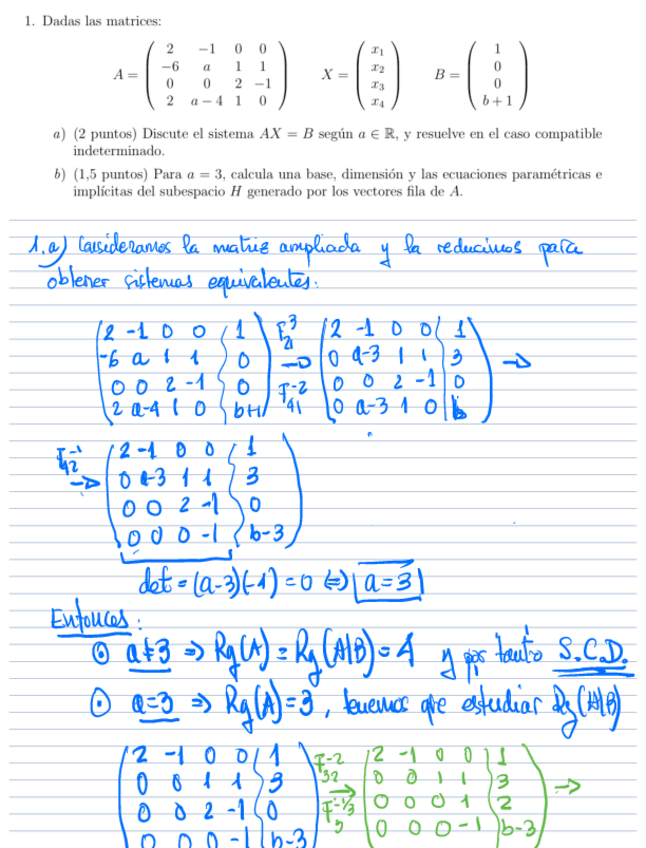 1. Dadas las matrices:
A = ( 2 -1 0 0 ; -6 a 1 1 ; 0 0 2 -1 ; 2 a-4 1 0 ) X = ( x1 ; x2 ; x3 ; x4 ) B = ( 1 ; 0 ; 0 ; b+1 )
a) (2 puntos) Discute el sistema AX = B según a ∈ ℝ, y resuelve en el caso compatible
indeterminado.
b) (1,5 puntos) Para a = 3, calcula una base, dimensión y las ecuaciones paramétricas e
implícitas del subespacio H generado por los vectores fila de A.
1.a) Consideramos la matriz ampliada y la reducimos para
obtener sistemas equivalentes:
( 2 -1 0 0 | 1 ; -6 a 1 1 | 0 ; 0 0 2 -1 | 0 ; 2 a-4 1 0 | b+1 ) F21^3 → F41^-2 ( 2 -1 0 0 | 1 ; 0 a-3 1 1 | 3 ; 0 0 2 -1 | 0 ; 0 a-3 1 0 | b ) →
F42^-1 → ( 2 -1 0 0 | 1 ; 0 a-3 1 1 | 3 ; 0 0 2 -1 | 0 ; 0 0 0 -1 | b-3 )
det = (a-3)(-4) = 0 ⇔ a=3
Entonces:
a≠3 ⇒ Rg(A) = Rg(A|B) = 4 y por tanto S.C.D.
a=3 ⇒ Rg(A) = 3, tenemos que estudiar Rg(A|B)
( 2 -1 0 0 | 1 ; 0 0 1 1 | 3 ; 0 0 2 -1 | 0 ; 0 0 0 -1 | b-3 ) F32^-2 → F3^-1/3 ( 2 -1 0 0 | 1 ; 0 0 1 1 | 3 ; 0 0 0 1 | 2 ; 0 0 0 -1 | b-3 ) →